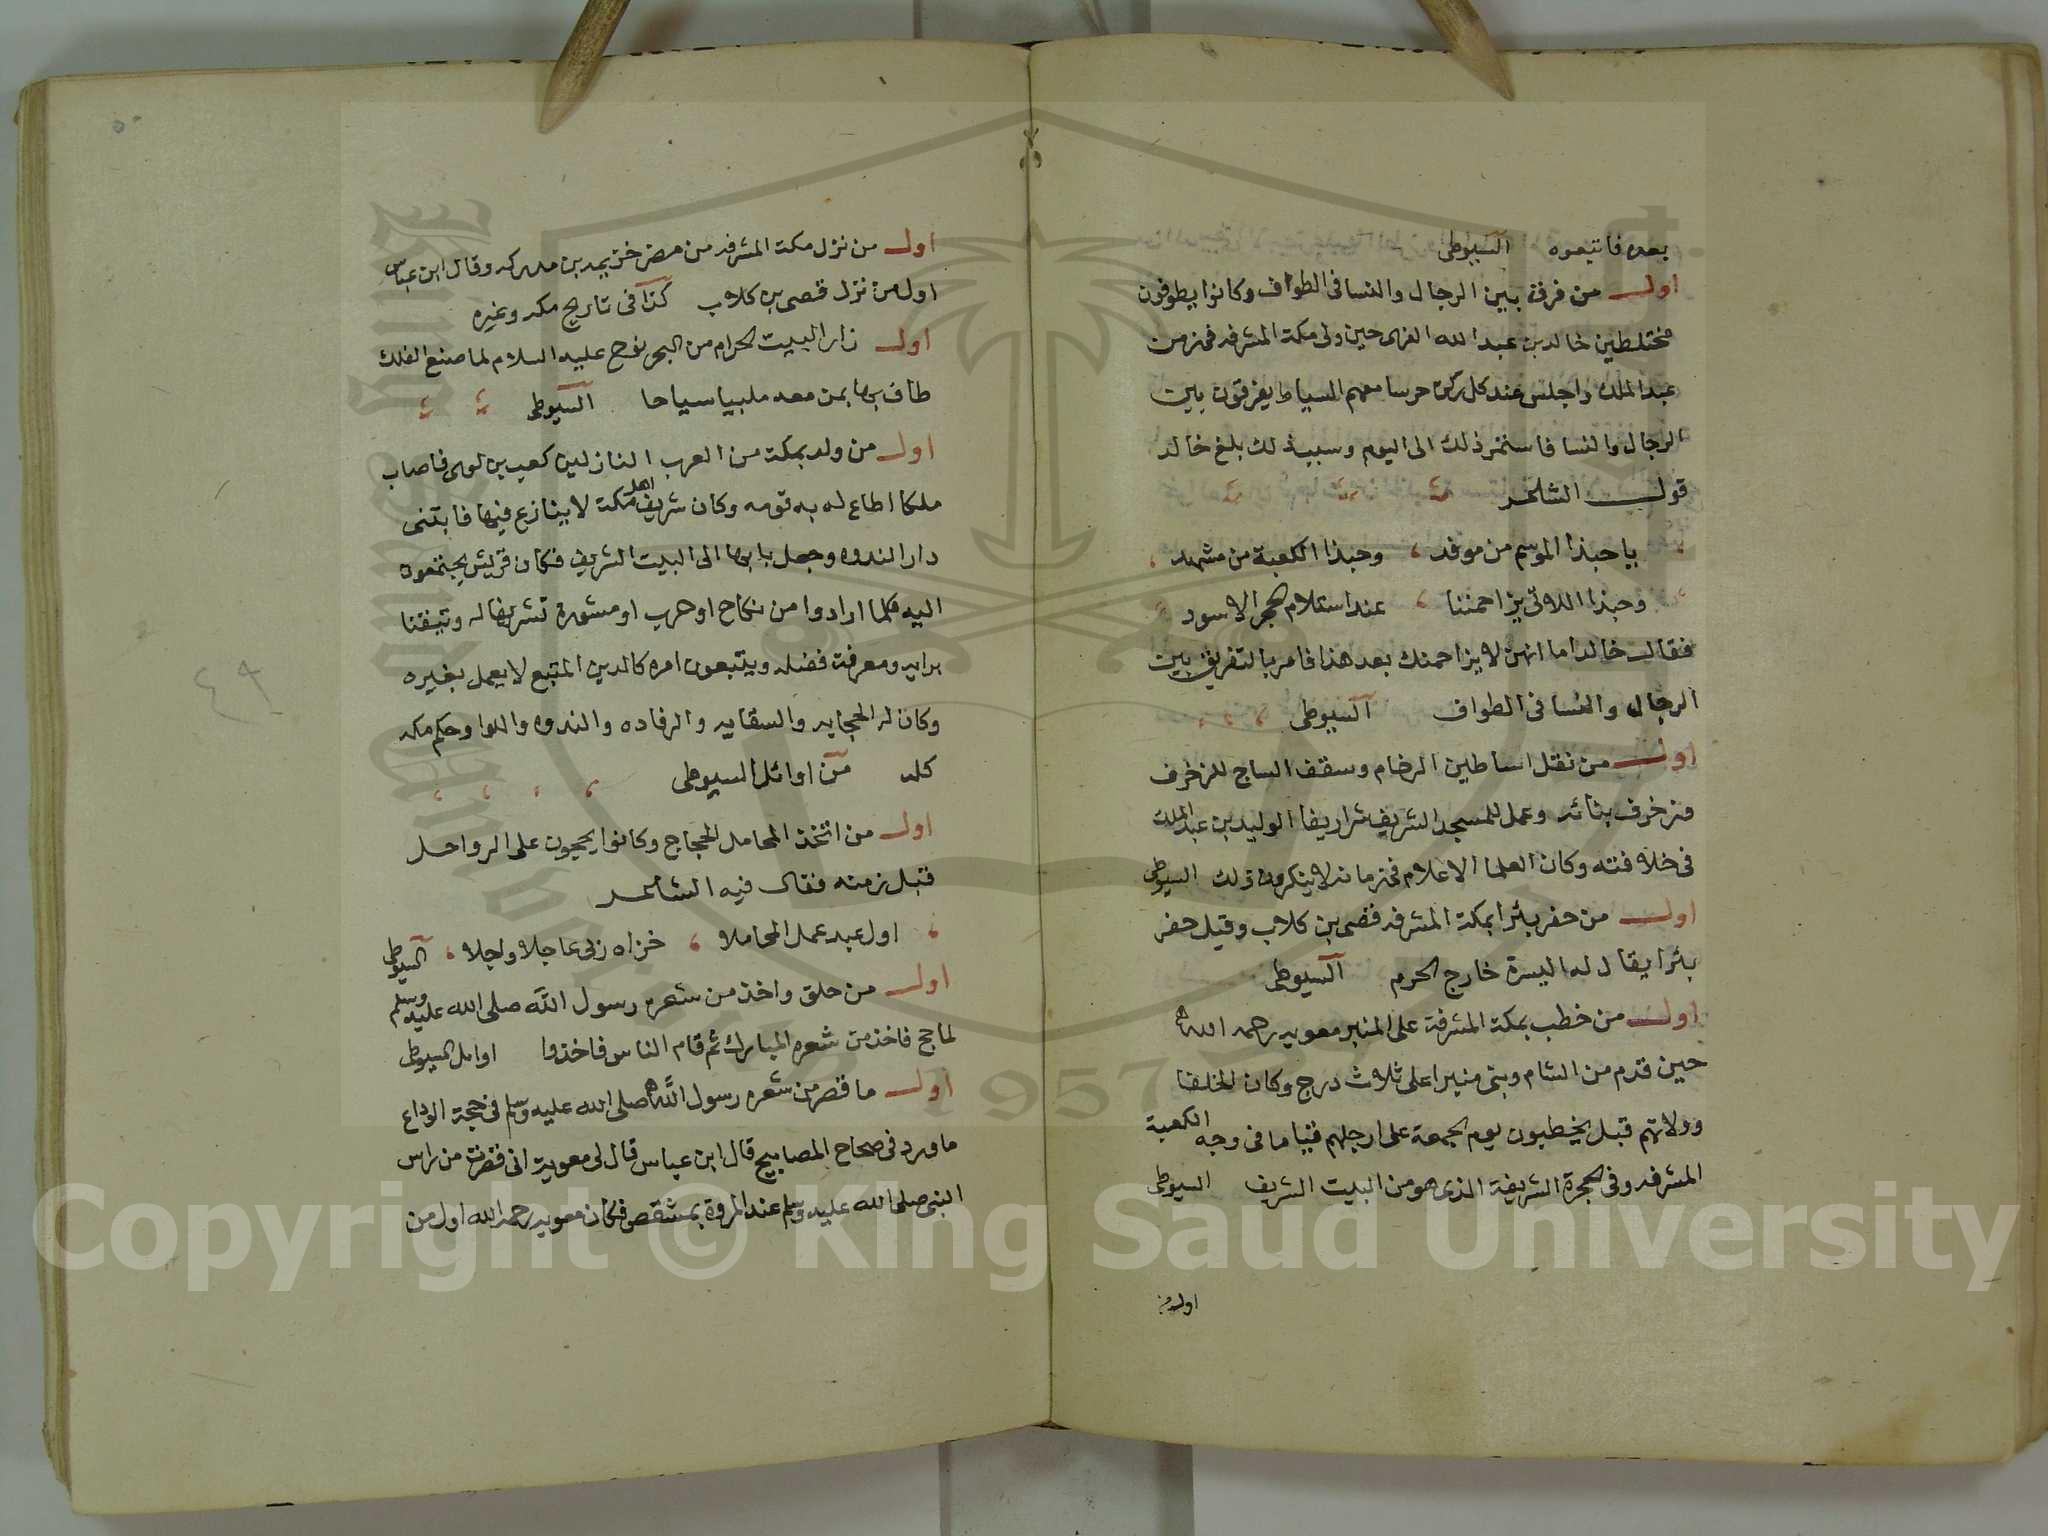 بعده فاتبعوه السيوطى
اول من فرق بين الرجال والنسا فى الطواف وكانوا يطوفون
مختلطين خالد بن عبد الله القرى حين ولى مكة المشرفه فى زمن
عبد الملك واجلس عند كل ركن حرسا معهم السياط يفرقون بين
الرجال والنسا فاستمر ذلك الى اليوم وسبب ذلك بلغ خالد
قول الشاعر
يا حبذا الموسم من موفد وحبذا الكعبة من مشهد
وحبذا اللاتى يزاحمننا عند استلام الحجر الاسود
فقال خالد اما انهن لا يزاحمنك بعد هذا فامر بالتفريق بين
الرجال والنسا فى الطواف السيوطى
اول من نقل اساطين الرخام وسقف الساج للزخرف
وعمل للمسجد الشريف شراريفا الوليد بن عبد الملك
فى خلافته وكان العلما الاعلام فى زمانه لا ينكرون ذلك السيوطى
اول من حفر بئرا بمكة المشرفه قصى بن كلاب وقيل حفر
بئرا يقال له اليسرة خارج الحرم السيوطى
اول من خطب بمكة المشرفة على المنبر معويه رحمه الله
حين قدم من الشام وبنى منبرا على ثلاث درج وكان الخلفا
وولاتهم قبل يخطبون يوم الجمعة على ارجلهم قياما فى وجه الكعبة
المشرفه وفى الحجرة الشريفة الذى هو من البيت الشريف السيوطى
اول من
٥٠
اول من نزل مكة المشرفه من مضر خزيمه بن مدركه وقال ابن عباس
اول من نزل قصى بن كلاب كذا فى تاريخ مكه وغيره
اول زار البيت الحرام من البحر نوح عليه السلام لما صنع الفلك
طاف بها بمن معه ملبيا سياحا السيوطى
اول من ولد بمكة من العرب النازلين كعب بن لوى فاصاب
ملكا اطاع له به قومه وكان شريف اهل مكة لا ينازع فيها فابتنى
دار الندوه وجعل بابها الى البيت الشريف فكان قريش يجتمعون
اليه فكلما ارادوا من نكاح او حرب او مشورة تشريفا له وتيقنا
برايه ومعرفة فضله ويتبعون امره كالدين المتبع لا يعمل بغيره
وكان له الحجابه والسقايه والرفاده والندوه واللوا وحكم مكه
كله من اوائل السيوطى
اول من اتخذ المحامل للحجاج وكانوا يحجون على الرواحل
قبل زمنه فقال فيه الشاعر
اول عبد عمل المحاملا خزاه ربى عاجلا واجلا السيوطى
اول من حلق واخذ من شعره رسول الله صلى الله عليه وسلم
لما حج فاخذ من شعره المبارك ثم قام الناس فاخذوا اوايل السيوطى
اول ما قصر من شعره رسول الله صلى الله عليه وسلم فى حجة الوداع
ما ورد فى صحاح المصابيح قال ابن عباس قال لى معوية انى قصرت من راس
النبى صلى الله عليه وسلم عند المروة بمشقص فكان معويه رحمه الله اول من
٤٩
Copyright © King Saud University
1957